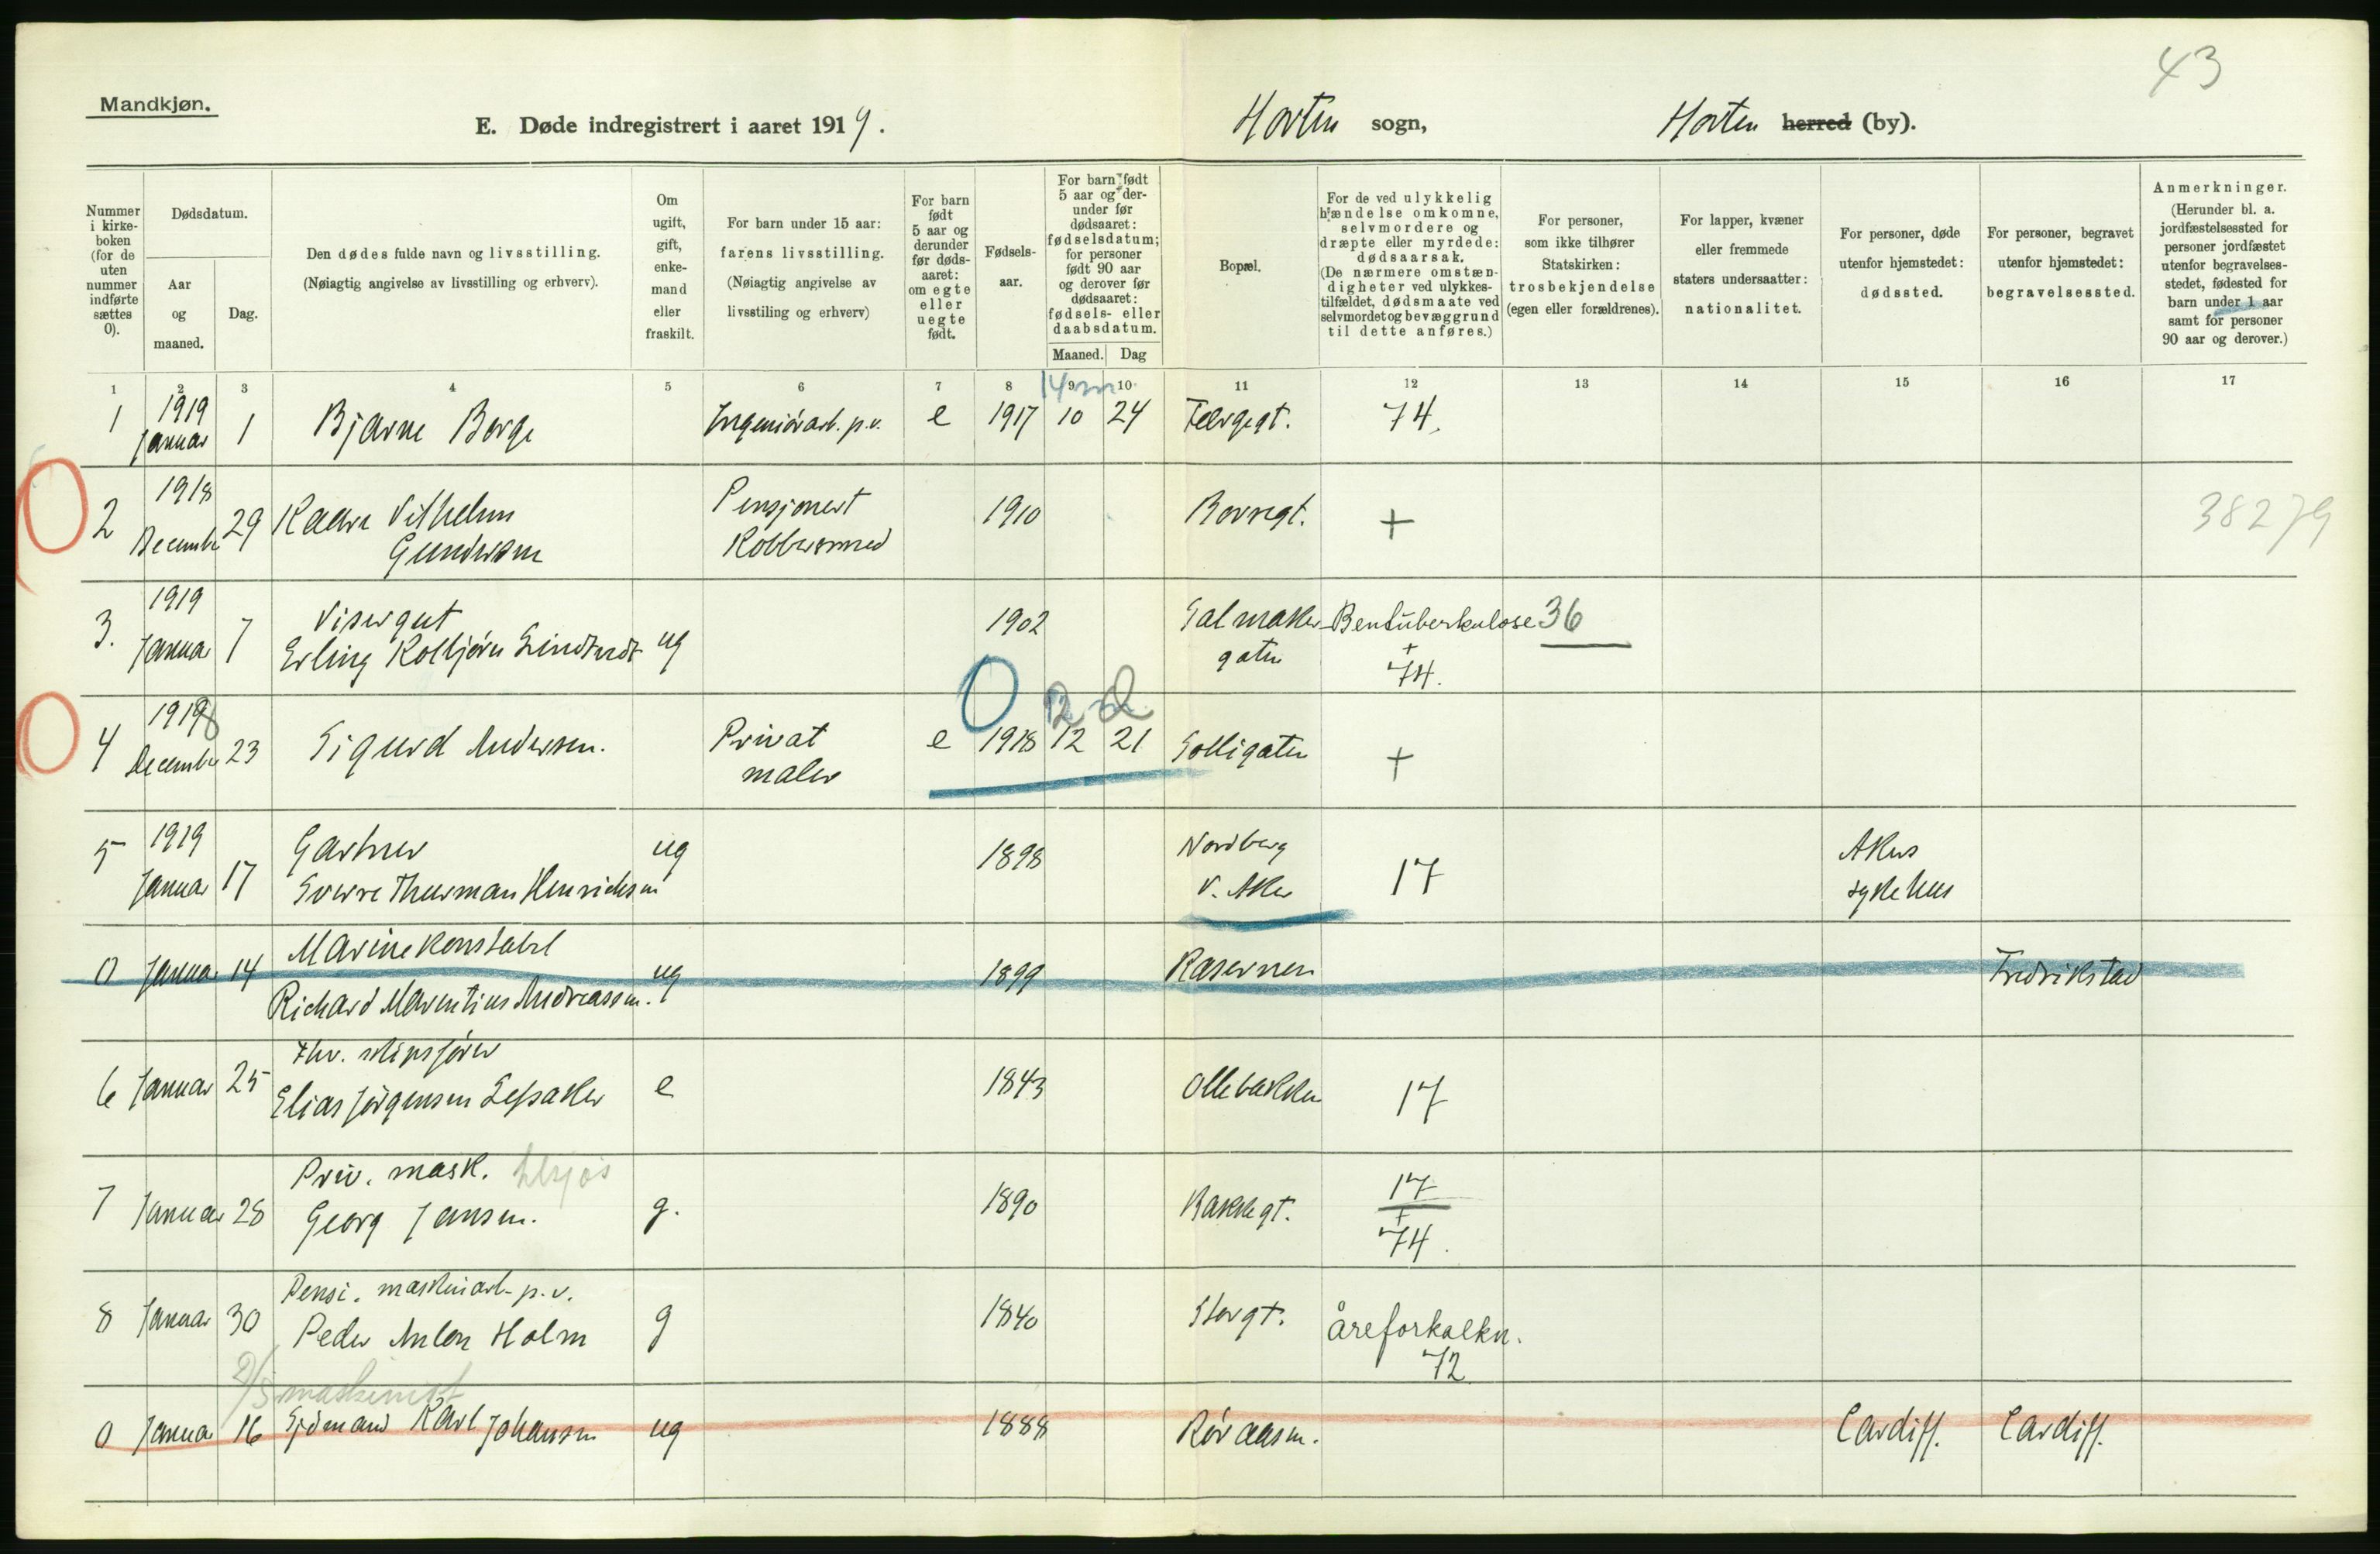 43
Mandkjøn.
E. Døde indregistrert i aaret 1919.
Horten sogn,
Horten herred (by).
Nummer i kirkeboken (for de uten nummer indførte sættes 0).
Dødsdatum.
Aar og maaned.
Dag.
Den dødes fulde navn og livsstilling.
(Nøiagtig angivelse av livsstilling og erhverv).
Om ugift, gift, enkemand eller fraskilt.
For barn under 15 aar:
farens livsstilling.
(Nøiagtig angivelse av livsstiling og erhverv)
For barn født 5 aar og derunder før dødsaaret: om egte eller uegte født.
Fødselsaar.
For barn født 5 aar og derunder før dødsaaret: fødselsdatum; for personer født 90 aar og derover før dødsaaret: fødsels- eller daabsdatum.
Maaned. Dag
Bopæl.
For de ved ulykkelig hændelse omkomne, selvmordere og dræpte eller myrdede: dødsaarsak.
(De nærmere omstændigheter ved ulykkestilfældet, dødsmaate ved selvmordet og bevæggrund til dette anføres.)
For personer, som ikke tilhører Statskirken: trosbekjendelse (egen eller forældrenes).
For lapper, kvæner eller fremmede staters undersaatter: nationalitet.
For personer, døde utenfor hjemstedet: dødssted.
For personer, begravet utenfor hjemstedet: begravelsessted.
Anmerkninger.
(Herunder bl. a. jordfæstelsessted for personer jordfæstet utenfor begravelsesstedet, fødested for barn under 1 aar samt for personer 90 aar og derover.)
1 2 3 4 5 6 7 8 9 10 11 12 13 14 15 16 17
14 m
1 1919 Januar 1 Bjarne Borge Ingeniørarb. p.v. e 1917 10 24 74.
2 1918 December 29 Kaare Vilhelm Gundersen Pensjonert Kobbersmed 1910 + 38279
3. 1919 Januar 7 Visergut
Erling Kolbjørn ug 1902 Salmakergaten Bentuberkulose 36
+
74.
0 2 d
4 1918 December 23 Sigurd Andersen. Privat maler e 1918 12 21 Solligaten +
5 1919 Januar 17 Gartner
Sverre Thurman Henriksen ug 1898 Nordberg V. Aker 17 Akers sykehus
0 Januar 14 Marinekonstabel
Richard Marentius Andreassen. ug 1899 Kasernen Fredrikstad
6 Januar 25 Fhv. skipsfører
Elias Jørgensen e 1843 Ollebakken 17
7 Januar 28 Priv. mask.
Georg Jansen. g. 1890 Bakkegt. 17
+
74.
8 Januar 30 Pensj. maskinarb. p.v.
Peder Anton Holm g 1840 Storgt. åreforkalkn.
72
maskinist
0 Januar 16 Sjømand Karl Johansen ug 1888 Røraasen. Cardiff. Cardiff.